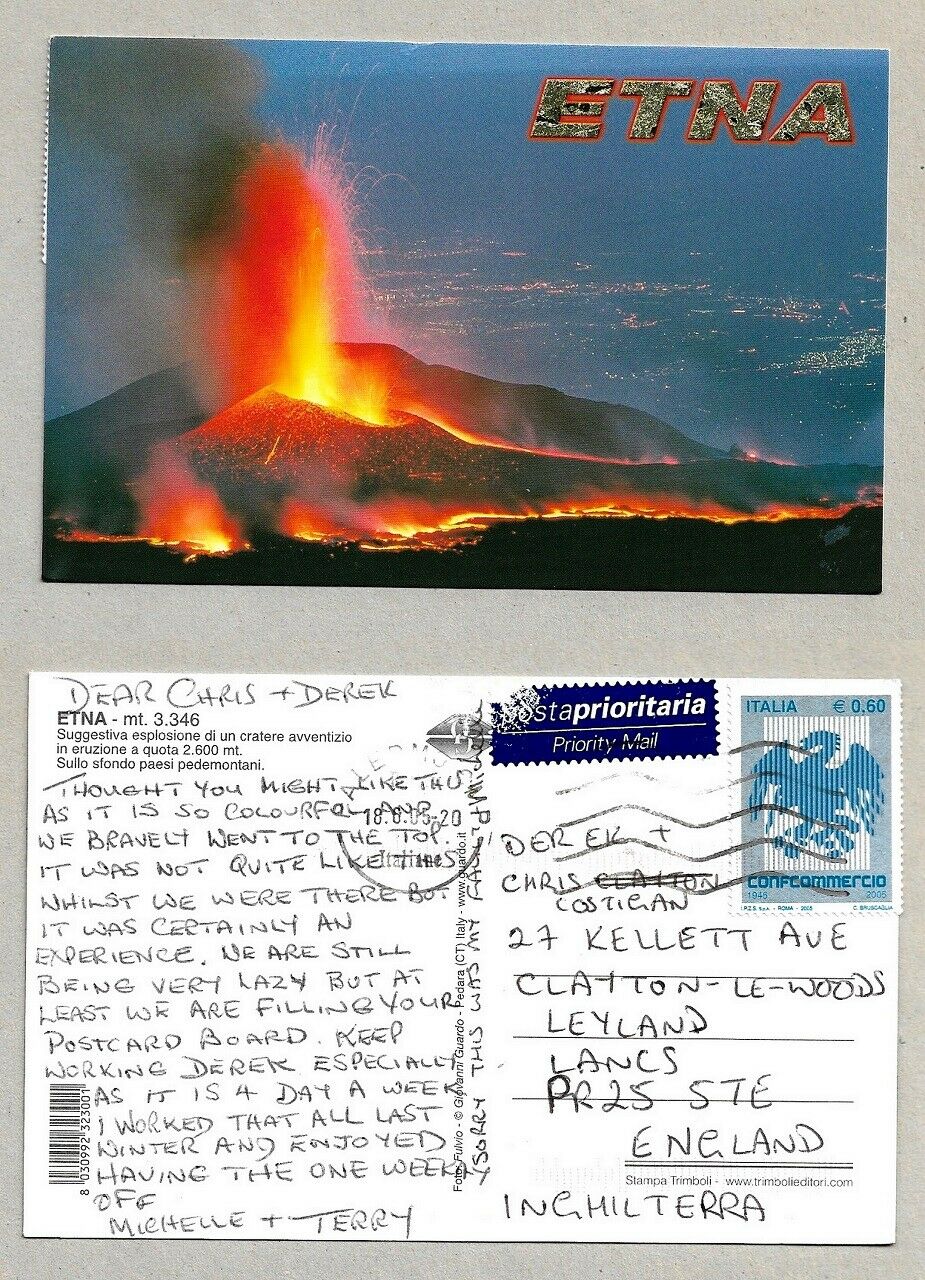 ETNA
DEAR CHRIS + DEREK
ETNA - mt. 3.346
Suggestiva esplosione di un cratere avventizio
in eruzione a quota 2.600 mt.
Sullo sfondo paesi pedemontani.
THOUGHT YOU MIGHT LIKE THIS
AS IT IS SO COLOURFUL AND
WE BRAVELY WENT TO THE TOP.
IT WAS NOT QUITE LIKE THIS
WHILST WE WERE THERE BUT
IT WAS CERTAINLY AN
EXPERIENCE. WE ARE STILL
BEING VERY LAZY BUT AT
LEAST WE ARE FILLING YOUR
POSTCARD BOARD. KEEP
WORKING DEREK ESPECIALLY
AS IT IS 4 DAY A WEEK
I WORKED THAT ALL LAST
WINTER AND ENJOYED
HAVING THE ONE WEEKLY
OFF
MICHELLE + TERRY
8 030992 323001
18.6.05-20
Italiane
Foto: Fulvio - © Giovanni Guardo - Pedara (CT) Italy - www.guardo.it
SORRY THIS WAS MY FAULT
postaprioritaria
Priority Mail
ITALIA € 0,60
CONFCOMMERCIO
1945 2005
I.P.Z.S. S.p.A. - ROMA - 2005 C. BRUSCAGLIA
DEREK +
CHRIS CLAYTON
COSTIGAN
27 KELLETT AVE
CLAYTON-LE-WOODS
LEYLAND
LANCS
PR25 5TE
ENGLAND
Stampa Trimboli - www.trimbolieditori.com
INGHILTERRA